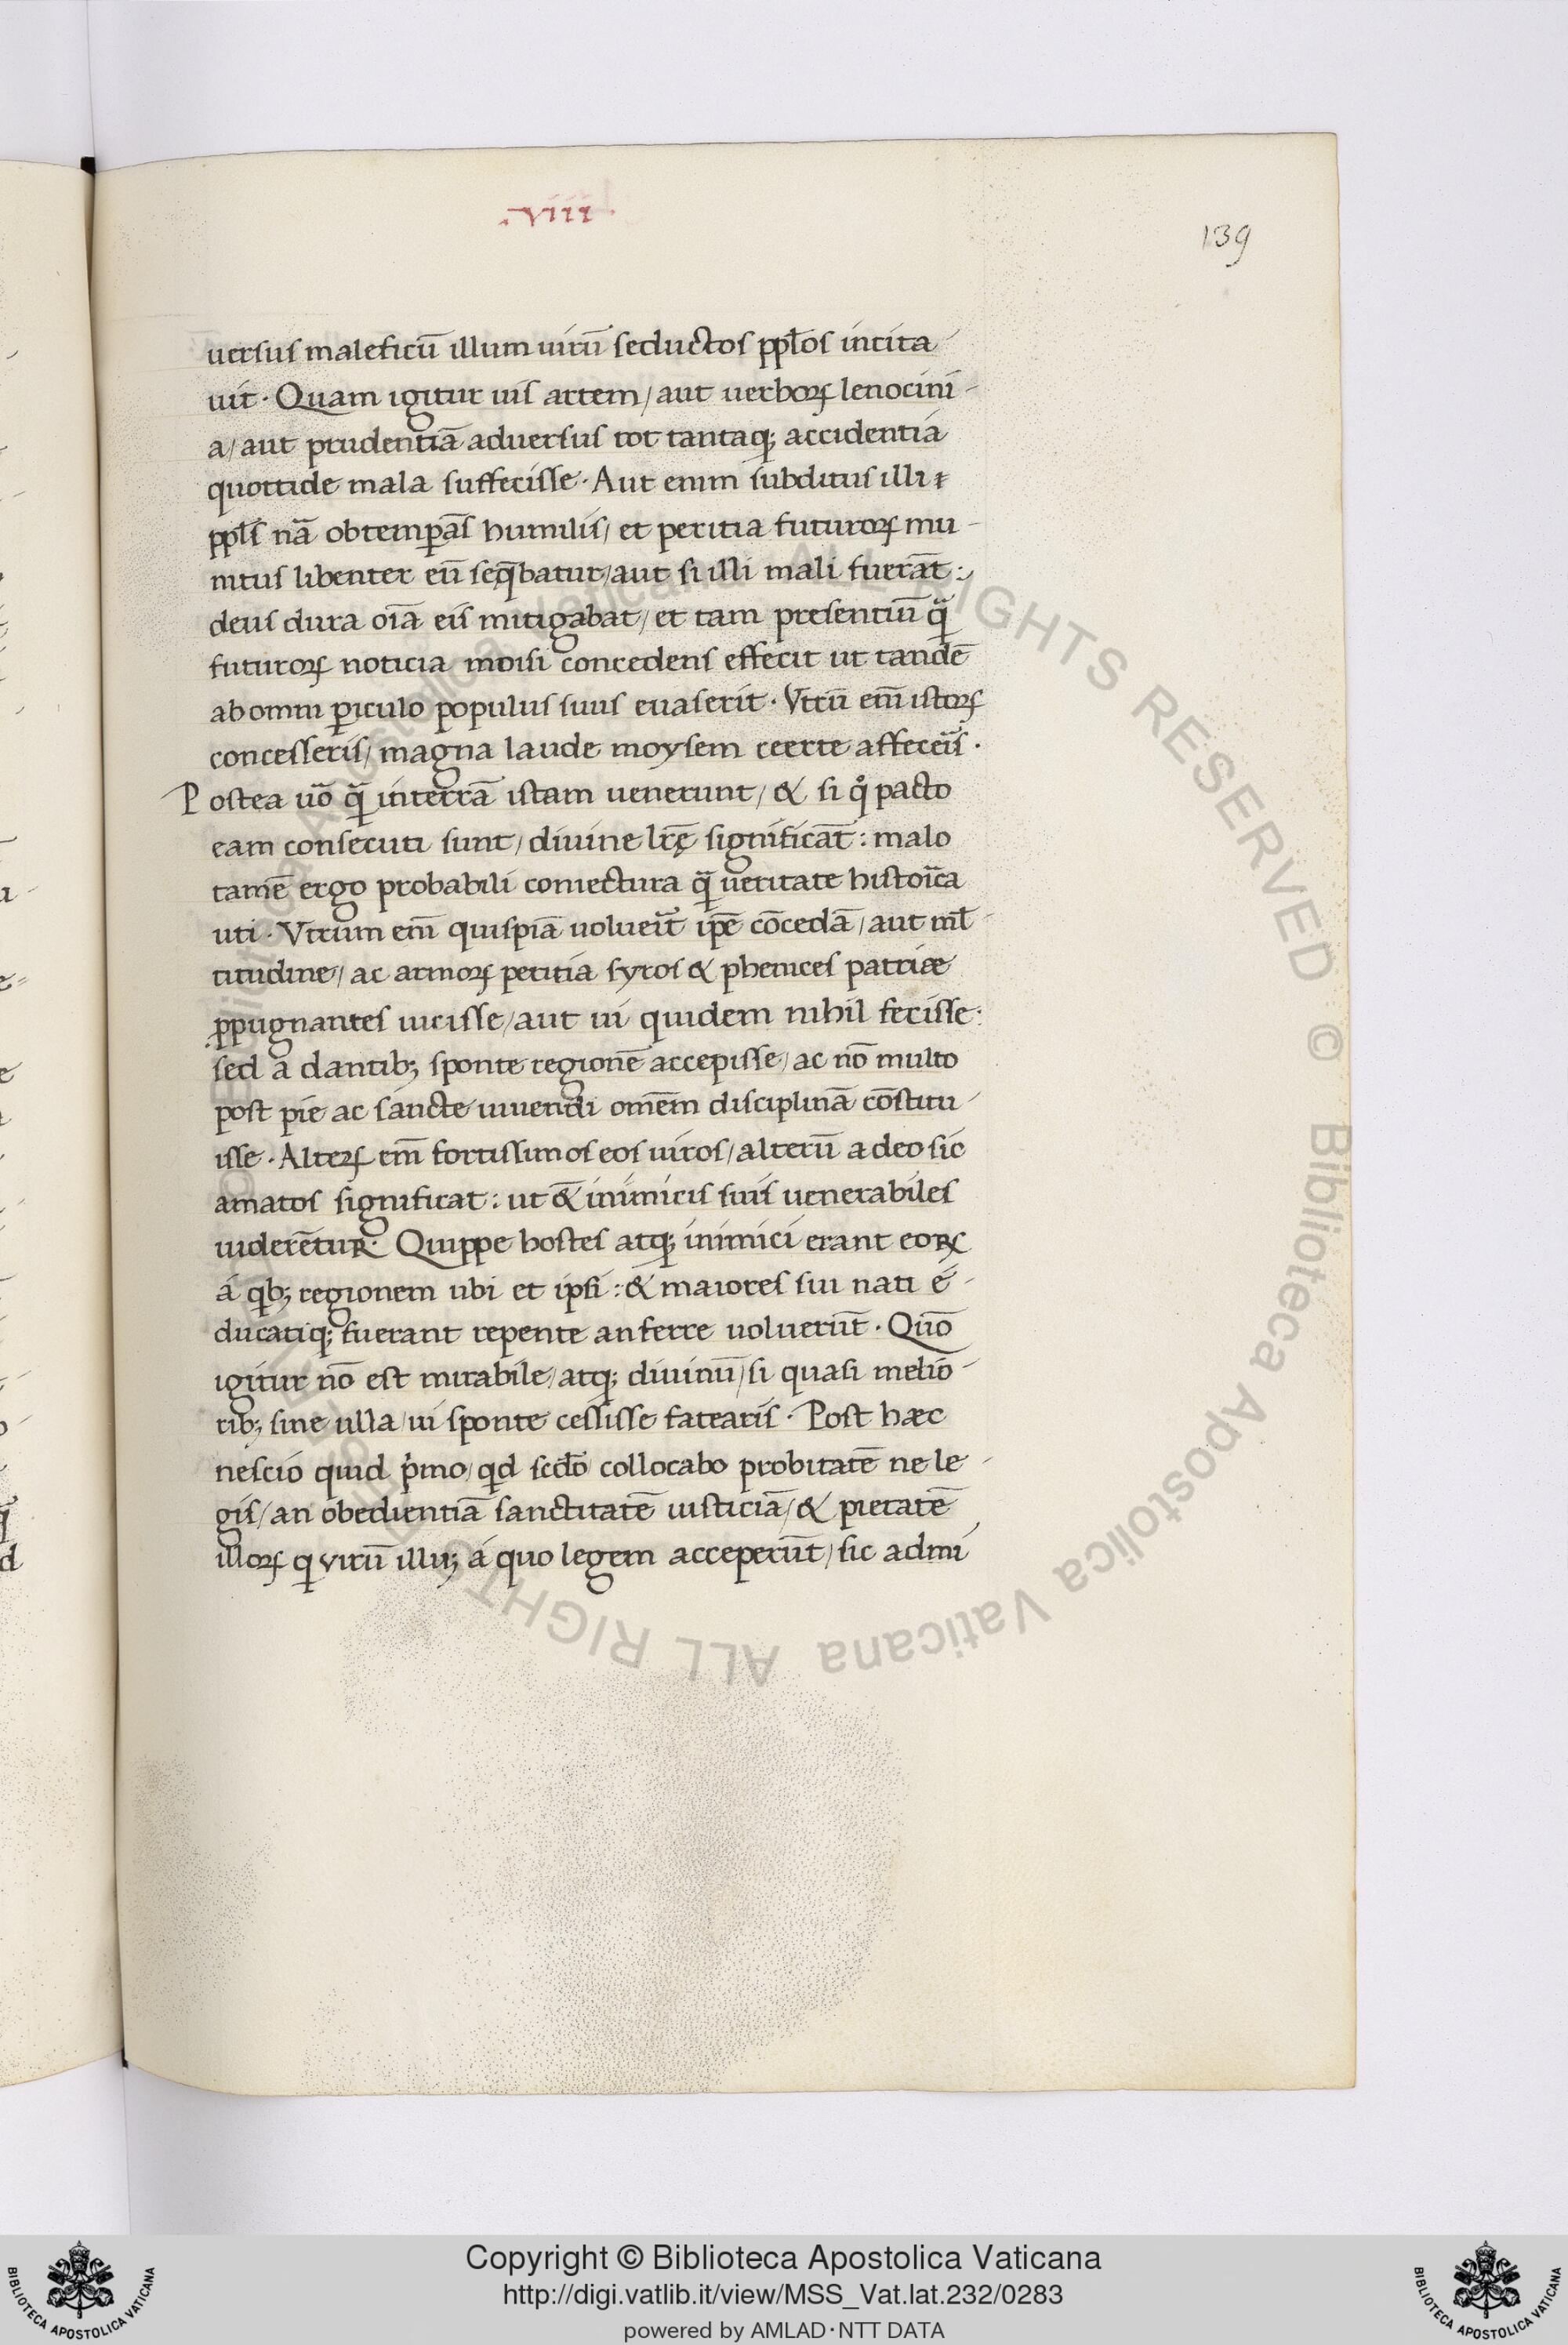 .viii.
139
uersus maleficū illum uirū seductos pplos incita-
uit. Quam igitur uis artem/ aut uerborꝝ lenocini-
a/ aut prudentiā aduersus tot tantaq; accidentia
quottide mala suffecisse. Aut enim subditus illi
ppls nā obtemꝑās humilis/ et peritia futurorꝝ mu-
nitus libenter eū seq̄batur/ aut si illi mali fuerāt:
deus dura oīa eis mitigabat/ et tam presentiū q̄
futurorꝝ noticia moisi concedens effecit ut tandē
ab omni ꝑiculo populus suus euaserit. Vtrū em̄ istorꝝ
concesseris/ magna laude moysem ceerte affeceīs.
Postea uo q̄ in terrā istam uenerunt/ & si q̊ pacto
eam consecuti sunt/ diuine lr̄ę significāt: malo
tamē ergo probabili coniectura q̄ ueritate histoīca
uti. Vtrum em̄ quispiā uolueīt ip̄e cōcedā/ aut ml̄-
titudine/ ac armorꝝ peritia syros & phenices patriæ
ꝓpugnantes uicisse/ aut ui quidem nihil fecisse:
sed a dantib; sponte regionē accepisse/ ac nō multo
post pie ac sancte uiuendi omēm disciplinā cōstitu-
isse. Alterꝝ em̄ fortissimos eos uiros/ alterū a deo sic
amatos significat: ut & inimicis suis uenerabiles
uiderētur. Quippe hostes atq; inimici erant eorꝝ
á qb; regionem ubi et ipsi: & maiores sui nati é-
ducatiq; fuerant repente anferre uoluerūt. Quō
igitur nō est mirabile/ atq; diuinū/ si quasi melio-
rib; sine ulla ui sponte cessisse fatearis. Post hæc
nescio quid p̍mo/ qd scd̄o collocabo probitatē ne le-
gis/ an obedientiā sanctitatē iusticiā/ & pietatē
illorꝝ q uirū illū; á quo legem acceperūt/ sic admi
Copyright © Biblioteca Apostolica Vaticana
http://digi.vatlib.it/view/MSS_Vat.lat.232/0283
powered by AMLAD·NTT DATA
BIBLIOTECA APOSTOLICA VATICANA
BIBLIOTECA APOSTOLICA VATICANA
ALL RIGHTS RESERVED © Biblioteca Apostolica Vaticana